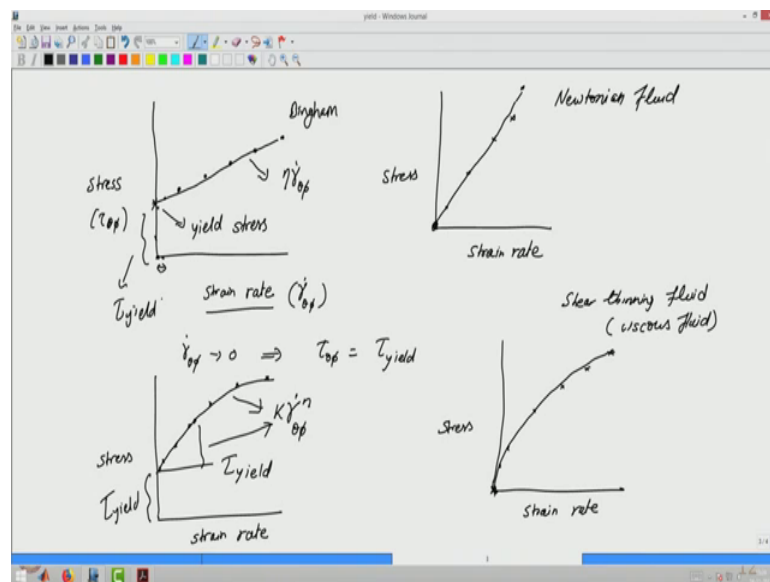 yield - Windows Journal
File Edit View Insert Actions Tools Help
Bingham
Stress
(τθφ)
ηγ̇θφ
yield stress
τyield
strain rate (γ̇θφ)
γ̇θφ → 0 ⇒ τθφ = τyield
Stress
τyield
Kγ̇θφⁿ
τyield
strain rate
Newtonian Fluid
Stress
Strain rate
Shear thinning fluid
(viscous fluid)
Stress
Strain rate